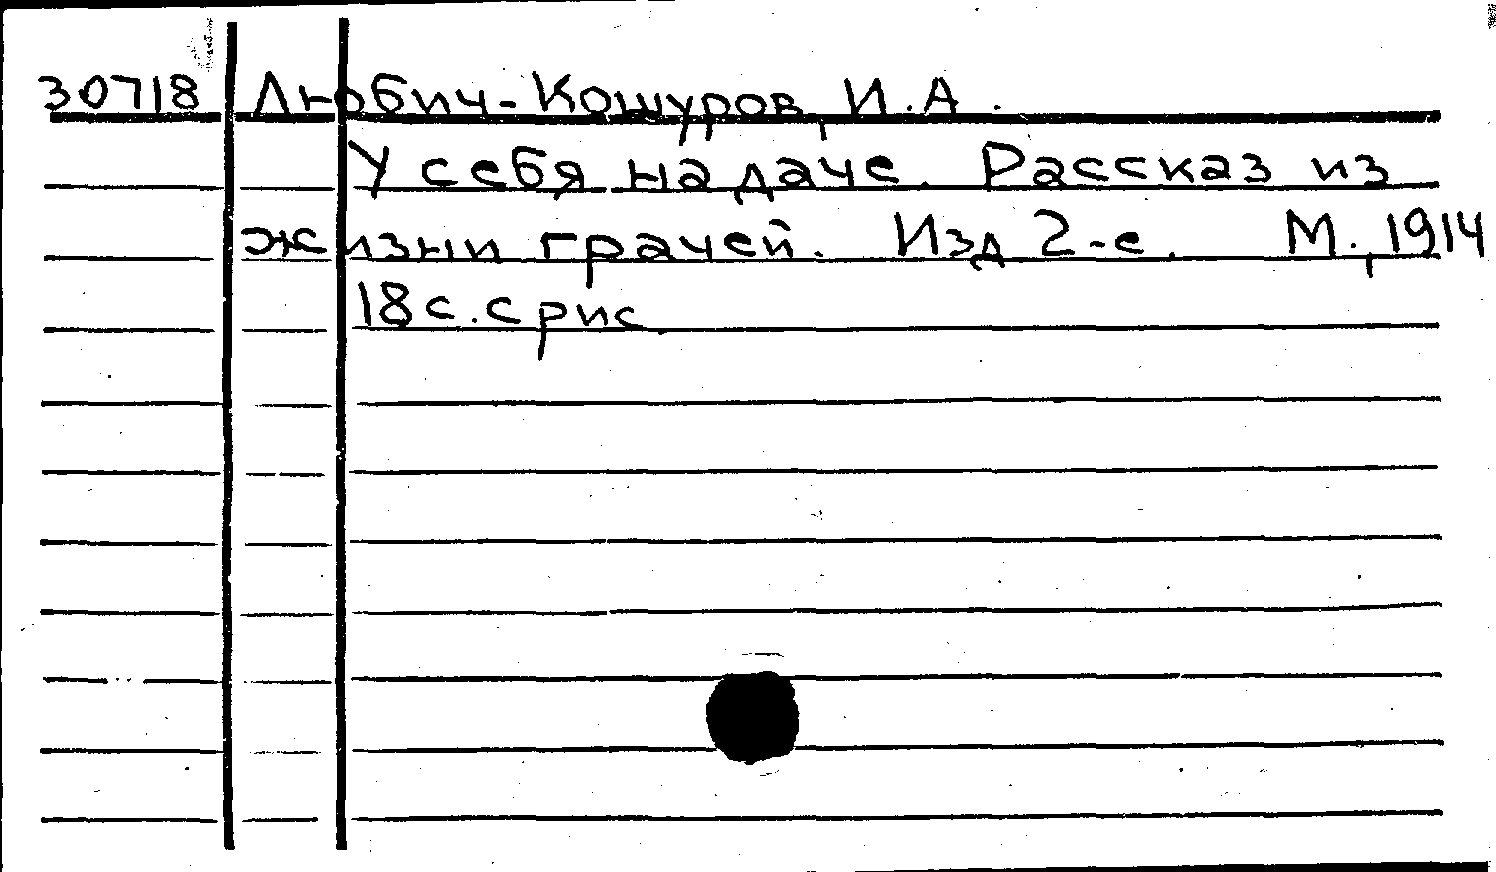 30718 Любич-Кошуров, И.А.
У себя на даче. Рассказ из
жизни грачей. Изд 2-е. М., 1914
18 с. с рис.